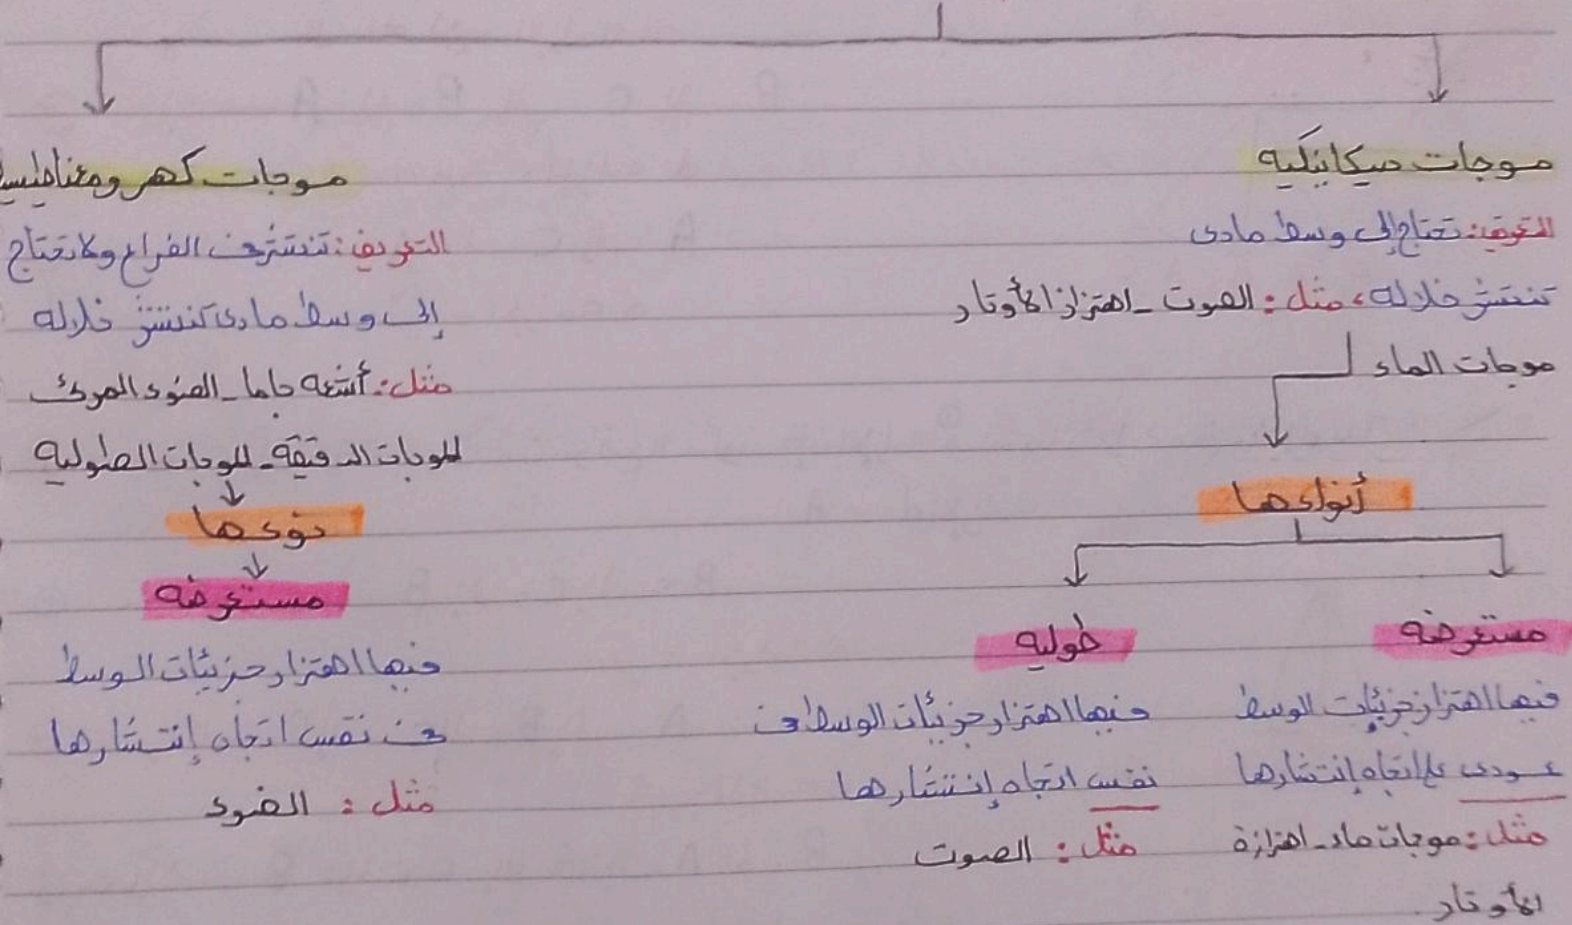 موجات ميكانيكيه
التعريف: تحتاج إلى وسط مادى
تنتشر خلاله، مثل: الصوت - اهتزاز الأوتار
موجات الماء
أنواعها
مستعرضه
فيها اهتزاز جزيئات الوسط
عمودى على اتجاه إنتشارها
مثل: موجات ماء - اهتزازة
الأوتار
طوليه
فيها اهتزاز جزيئات الوسط فى
نفس اتجاه إنتشارها
مثل: الصوت
موجات كهرومغناطيسي
التعريف: تنتشر فى الفراغ ولا تحتاج
إلى وسط مادى تنتشر خلاله
مثل: أشعه جاما - الضوء المرئ
الموجات الدقيقة - الموجات الطوليه
نوعها
مستعرضه
فيها اهتزاز جزيئات الوسط
فى نفس اتجاه إنتشارها
مثل: الضوء